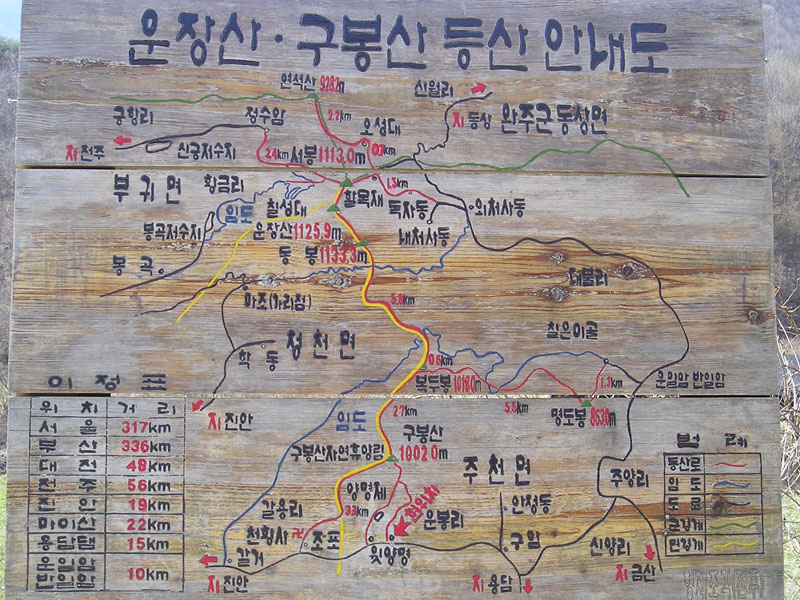 운장산·구봉산 등산 안내도
연석산 928.2m
신월리
지 동상
완주군 동상면
궁항리
정수암
오성대
2.2km
지 전주
신궁저수지
2.4km
서봉 1113.0m
부귀면
황금리
활목재
1.5km
독자동
외처사동
임도
칠성대
내처사동
봉곡저수지
운장산 1125.9m
동봉 1133.3m
봉곡
마조(가리점)
5.8km
칠은이골
학동
정천면
0.6km
복두봉 1018.0m
1.3km
운일암 반일암
이정표
지 진안
임도
2.7km
5.5km
명도봉 863.0m
구봉산 1002.0m
구봉산자연휴양림
주천면
주양리
갈용리
양명제
3.3km
현위치
운봉리
안정동
천황사
조포
구암
신양리
갈거
윗양명
지 진안
지 용담
지 금산
위치 거리
서울 317km
부산 336km
대전 48km
전주 56km
진안 19km
마이산 22km
용담댐 15km
운일암
반일암 10km
범례
등산로
임도
도로
군경계
면경계